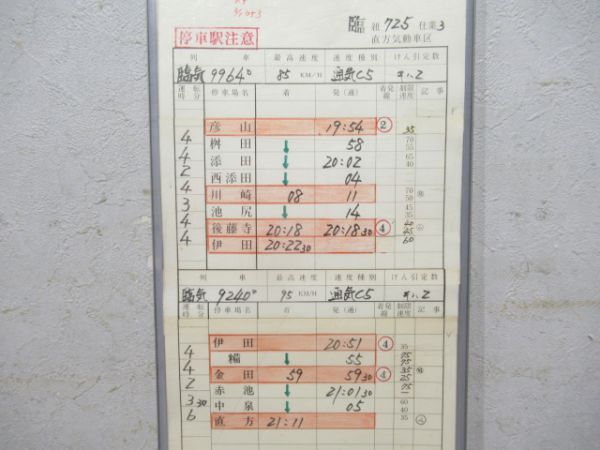 臨 組 725 仕業3
停車駅注意
直方気動車区
列車 最高速度 速度種別 けん引定数
臨気 9964D 85 KM/H 通気C5 キハ2
運転時分 停車場名 着 発(通) 着発線 制限速度 記事
彦山 19:54 ② 35
4 桝田 ↓ 58 70 55
4 添田 ↓ 20:02 65 40
2 西添田 ↓ 04
4 川崎 08 11 70 50
3 池尻 ↓ 14 45 35
4 後藤寺 20:18 20:18 30 ④
4 伊田 20:22 30 60
列車 最高速度 速度種別 けん引定数
臨気 9240D 95 KM/H 通気C5 キハ2
運転時分 停車場名 着 発(通) 着発線 制限速度 記事
伊田 20:51 ④ 35
4 糒 ↓ 55
4 金田 59 59 30 ④
2 赤池 ↓ 21:01 30
3 30 中泉 ↓ 05 60 40
6 直方 21:11 35